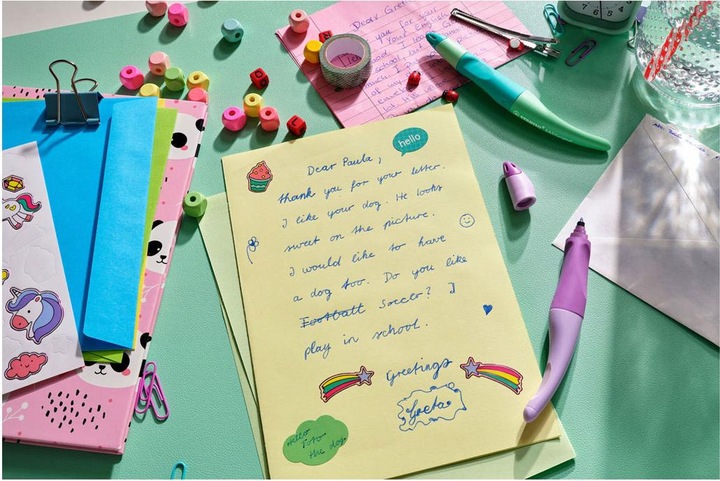 Dear Gret
you for your
hello
Dear Paula,
thank you for your letter.
I like your dog. He looks
sweet on the picture.
I would like to have
a dog too. Do you like
Football Soccer? I
play in school.
Greetings
Greta
Hello
Toto
the dog